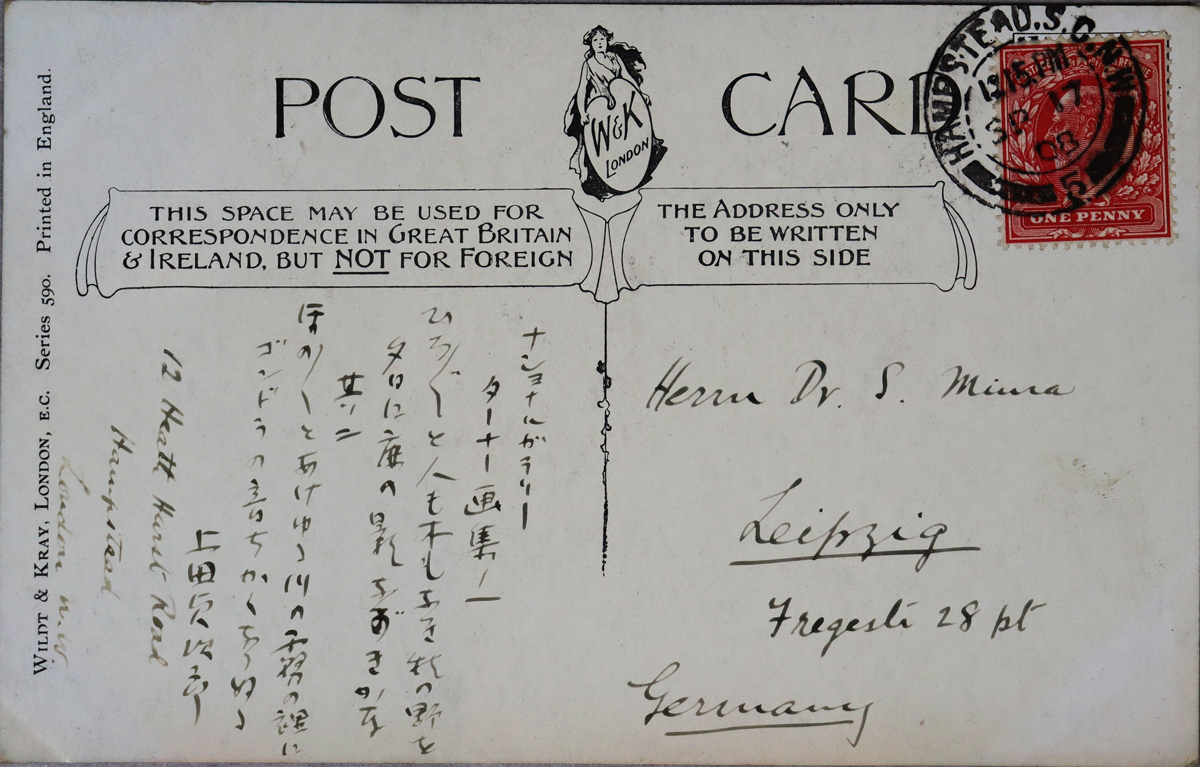 POST CARD
W&K
LONDON
THIS SPACE MAY BE USED FOR
CORRESPONDENCE IN GREAT BRITAIN
& IRELAND, BUT NOT FOR FOREIGN
THE ADDRESS ONLY
TO BE WRITTEN
ON THIS SIDE
HAMPSTEAD.S.O.N.W
12.15 PM
SP 17
08
5
ONE PENNY
WILDT & KRAY, LONDON, E.C. Series 590. Printed in England.
ナショナルガラリー
ターナー画集ノ一
ひろ〲と人も木もなき秋の野を
夕日に鹿の影なづきかな
其ノ二
ほの〱とあけゆく川の霧の裡に
ゴンドラの音ちかく
上田
12 Heath Hurst Road
Hampstead
London N.W.
Herrn Dr. S. Miura
Leipzig
Fregestr 28 pt
Germany